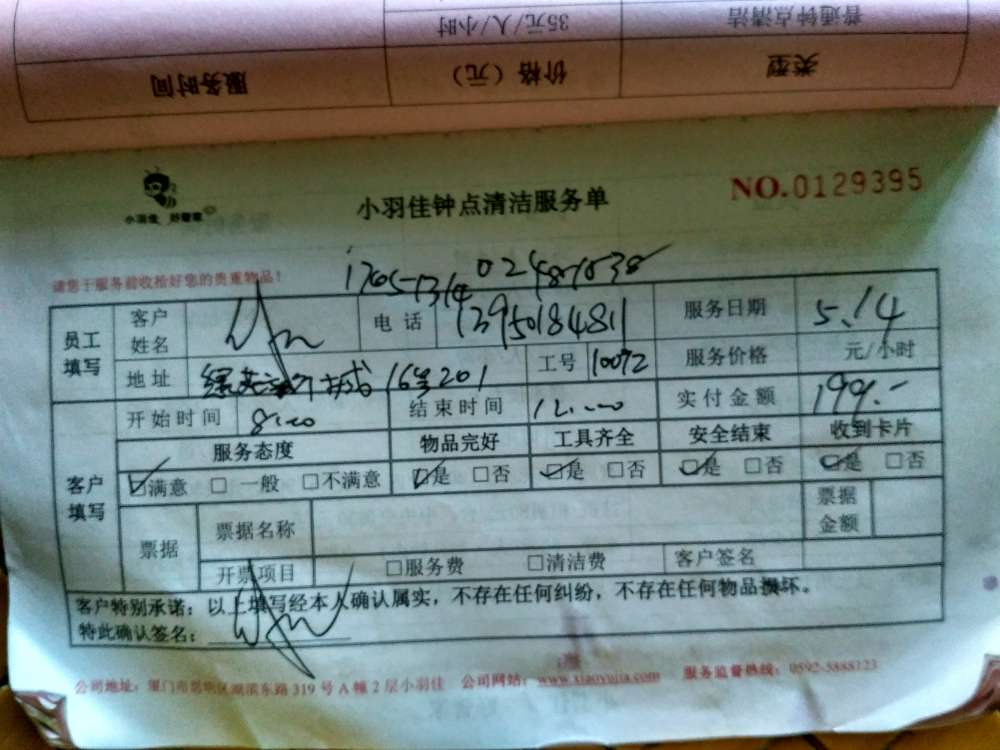 普通钟点清洁 35元/人/小时
类型 价格（元） 服务时间
小羽佳 好管家
小羽佳钟点清洁服务单
NO.0129395
请您于服务前收拾好您的贵重物品！
员工填写 客户姓名 电话 13950184811 服务日期 5.14
地址 16#201 工号 10072 服务价格 元/小时
客户填写 开始时间 8:00 结束时间 12:00 实付金额 199.-
服务态度 物品完好 工具齐全 安全结束 收到卡片
☑满意 □一般 □不满意 ☑是 □否 ☑是 □否 ☑是 □否 ☑是 □否
票据 票据名称 票据金额
开票项目 □服务费 □清洁费 客户签名
客户特别承诺：以上填写经本人确认属实，不存在任何纠纷，不存在任何物品损坏。
特此确认签名：
公司地址：厦门市思明区湖滨东路319号A幢2层小羽佳 公司网站：www.xiaoyujia.com 服务监督热线：0592-5888123